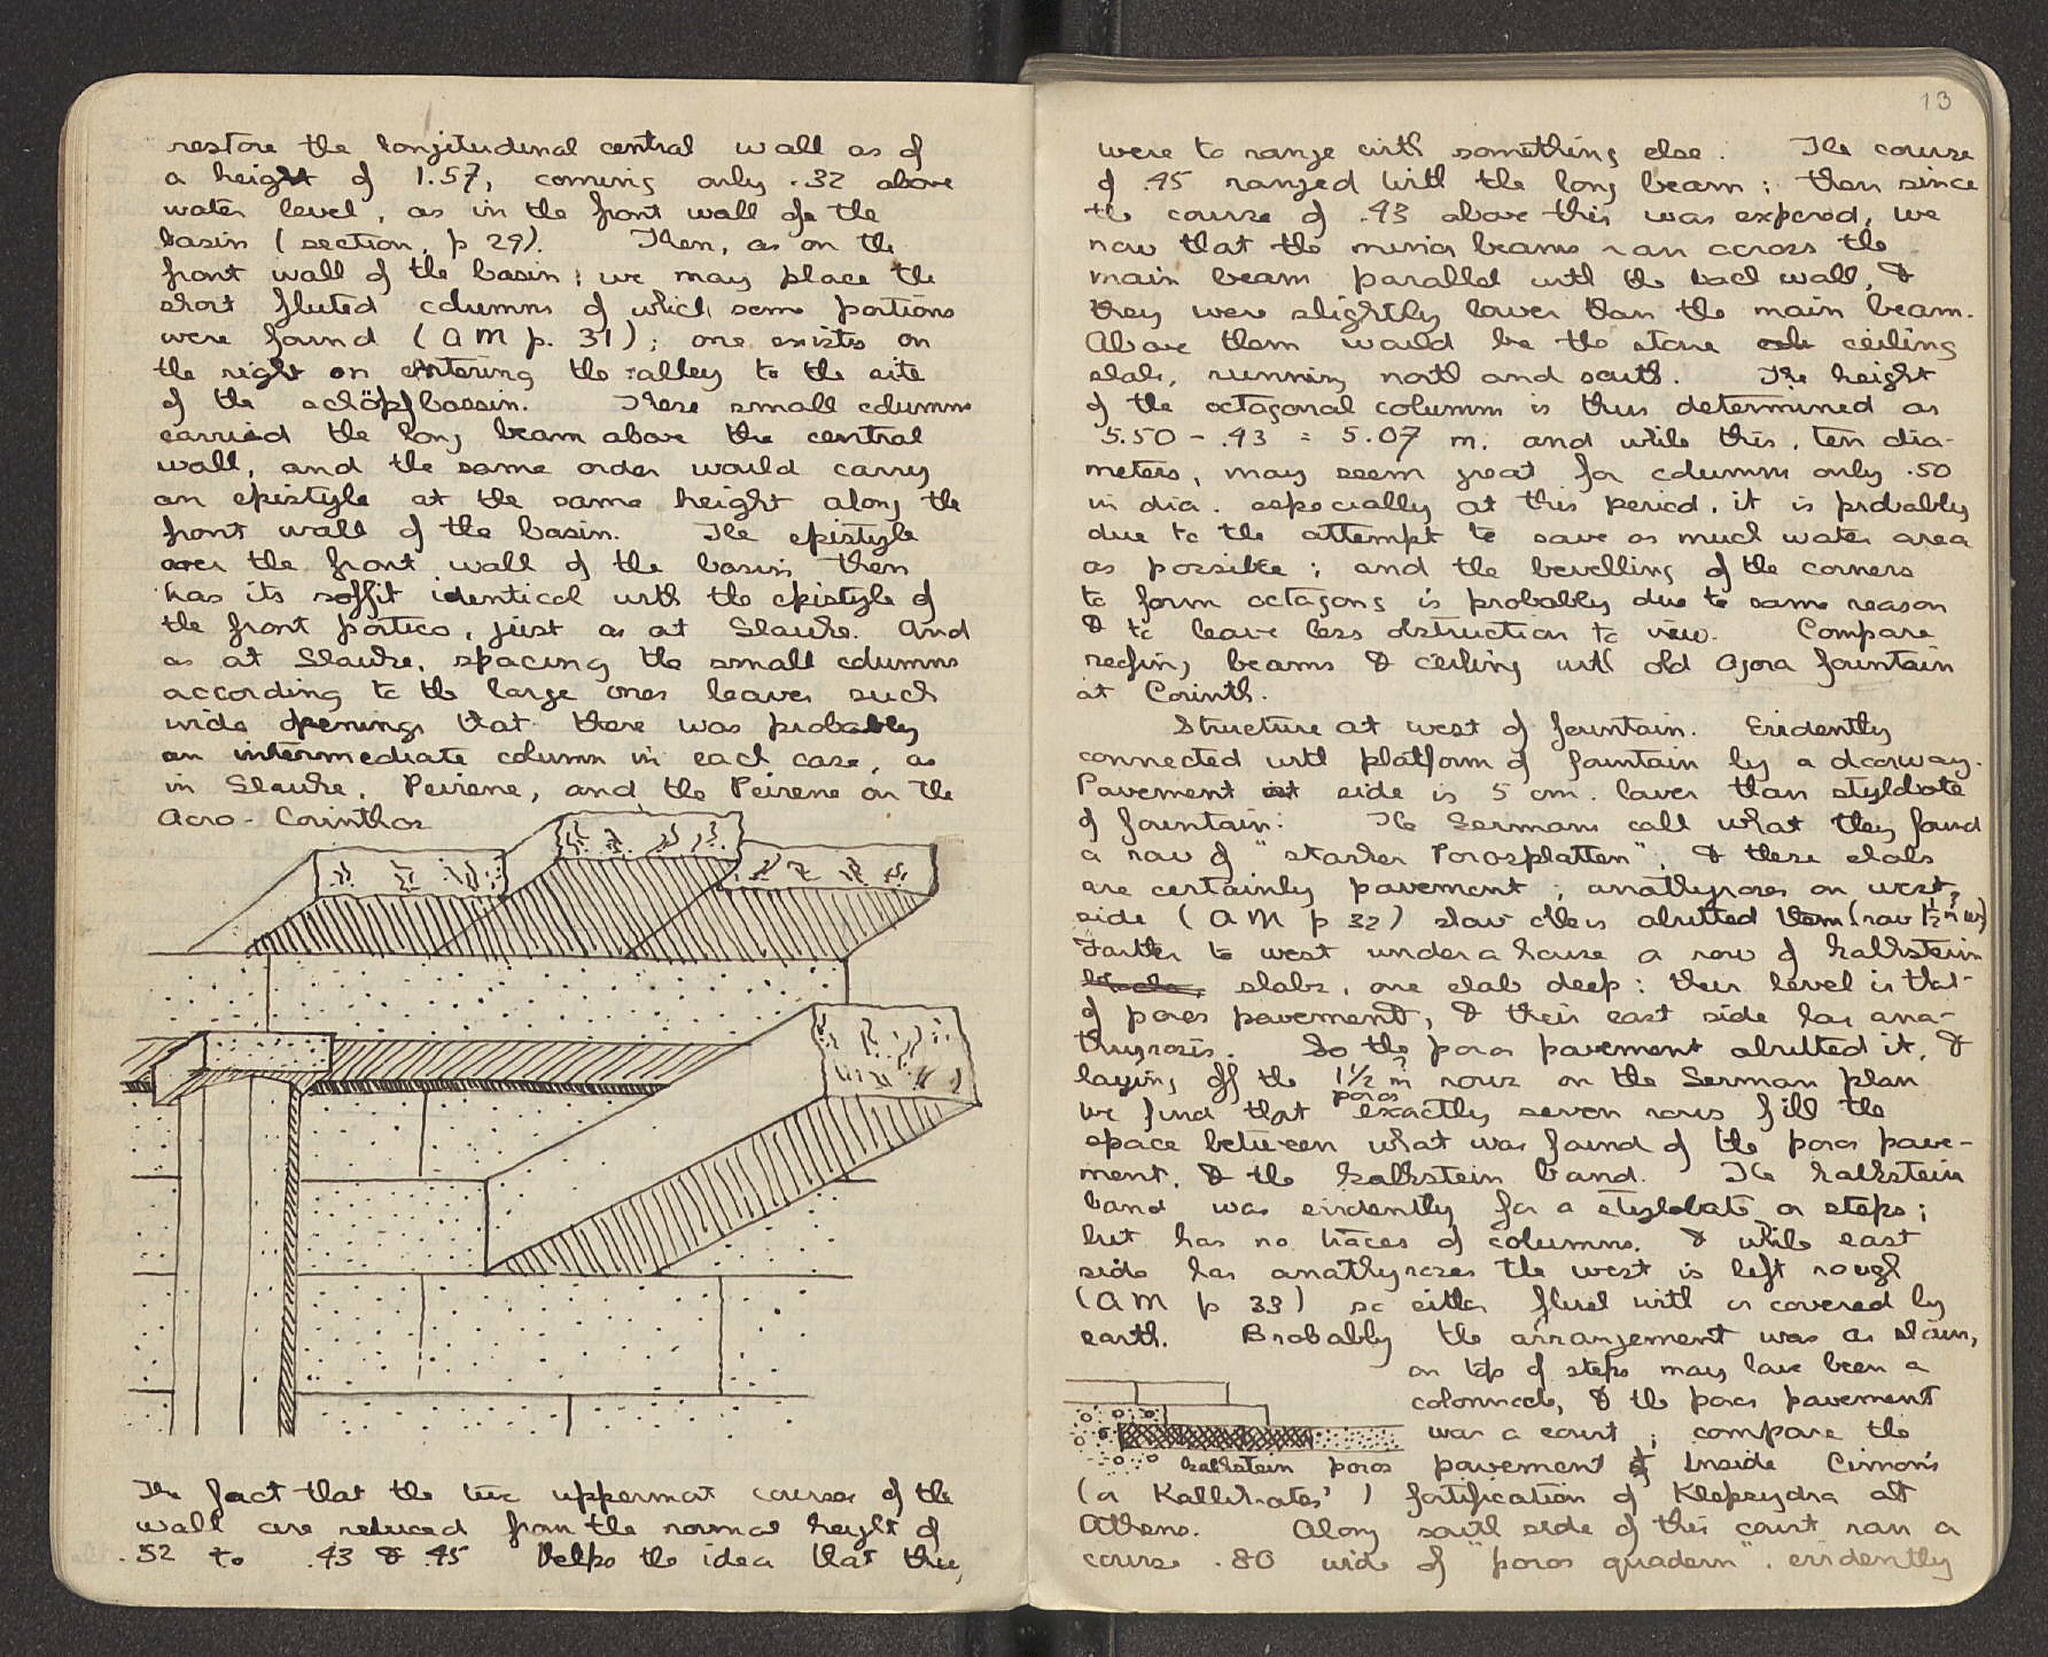 restore the longitudinal central wall as of
a height of 1.57, coming only .32 above
water level, as in the front wall of the
basin (section, p 29). Then, as on the
front wall of the basin, we may place the
short fluted columns of which some portions
were found (AM p. 31); one exists on
the right on entering the alley to the site
of the schöpfbassin. These small columns
carried the long beam above the central
wall, and the same order would carry
an epistyle at the same height along the
front wall of the basin. The epistyle
over the front wall of the basin then
has its soffit identical with the epistyle of
the front portico, just as at Glauke. And
as at Glauke, spacing the small columns
according to the large ones leaves such
wide openings that there was probably
an intermediate column in each case, as
in Glauke, Peirene, and the Peirene on the
Acro-Corinthos
The fact that the two uppermost courses of the
wall are reduced from the normal height of
.52 to .43 & .45 helps the idea that they
13
were to range with something else. The course
of .45 ranged with the long beam; then since
the course of .43 above this was exposed, we
now that the minor beams ran across the
main beam parallel with the back wall, &
they were slightly lower than the main beam.
Above them would be the stone ceiling
slabs, running north and south. The height
of the octagonal columns is thus determined as
5.50 - .43 = 5.07 m. and while this, ten dia-
meters, may seem great for columns only .50
in dia. especially at this period, it is probably
due to the attempt to save as much water area
as possible; and the bevelling of the corners
to form octagons is probably due to same reason
& to leave less obstruction to view. Compare
roofing beams & ceiling with old Agora fountain
at Corinth.
Structure at west of fountain. Evidently
connected with platform of fountain by a doorway.
Pavement side is 5 cm. lower than stylobate
of fountain. The Germans call what they found
a row of "starker Porosplatten", & these slabs
are certainly pavement; anathyroses on west
side (AM p 32) show others abutted them (row 1½ m w)
Farther to west under a house a row of kalkstein
slabs, one slab deep: their level is that
of poros pavement, & their east side has ana-
thyrosis. So the poros pavement abutted it, &
laying off the 1½ m rows on the German plan
we find that exactly seven poros rows fill the
space between what was found of the poros pave-
ment, & the kalkstein band. The kalkstein
band was evidently for a stylobate or steps;
but has no traces of columns, & while east
side has anathyroses the west is left rough
(AM p 33) so either flush with or covered by
earth. Probably the arrangement was as shown,
on top of steps may have been a
colonnade, & the poros pavement
was a court; compare the
kalkstein poros
pavement inside Cimon's
(or Kallikrates') fortification of Klepsydra at
Athens. Along south side of this court ran a
course .80 wide of "poros quadern", evidently